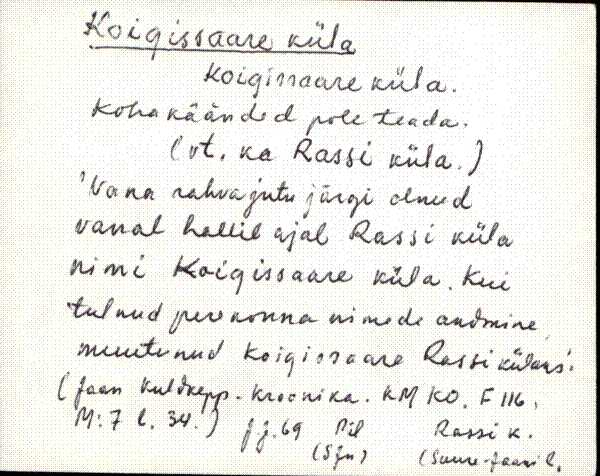 Koigissaare küla
Koigissaare küla.
Kohakäänded pole teada.
(vt. ka Rassi küla.)
'Vana rahvajutu järgi olnud
vanal hallil ajal Rassi küla
nimi Koigissaare küla. Kui
tulnud perekonna nimede andmine,
muutunud Koigissaare Rassi külaks'.
(Jaan Kuldkepp. Kroonika. KM KO. F 116,
M: 7 l. 34.) J J. 69 Pil Rassi k.
(SJn) (Suure-Jaani l.